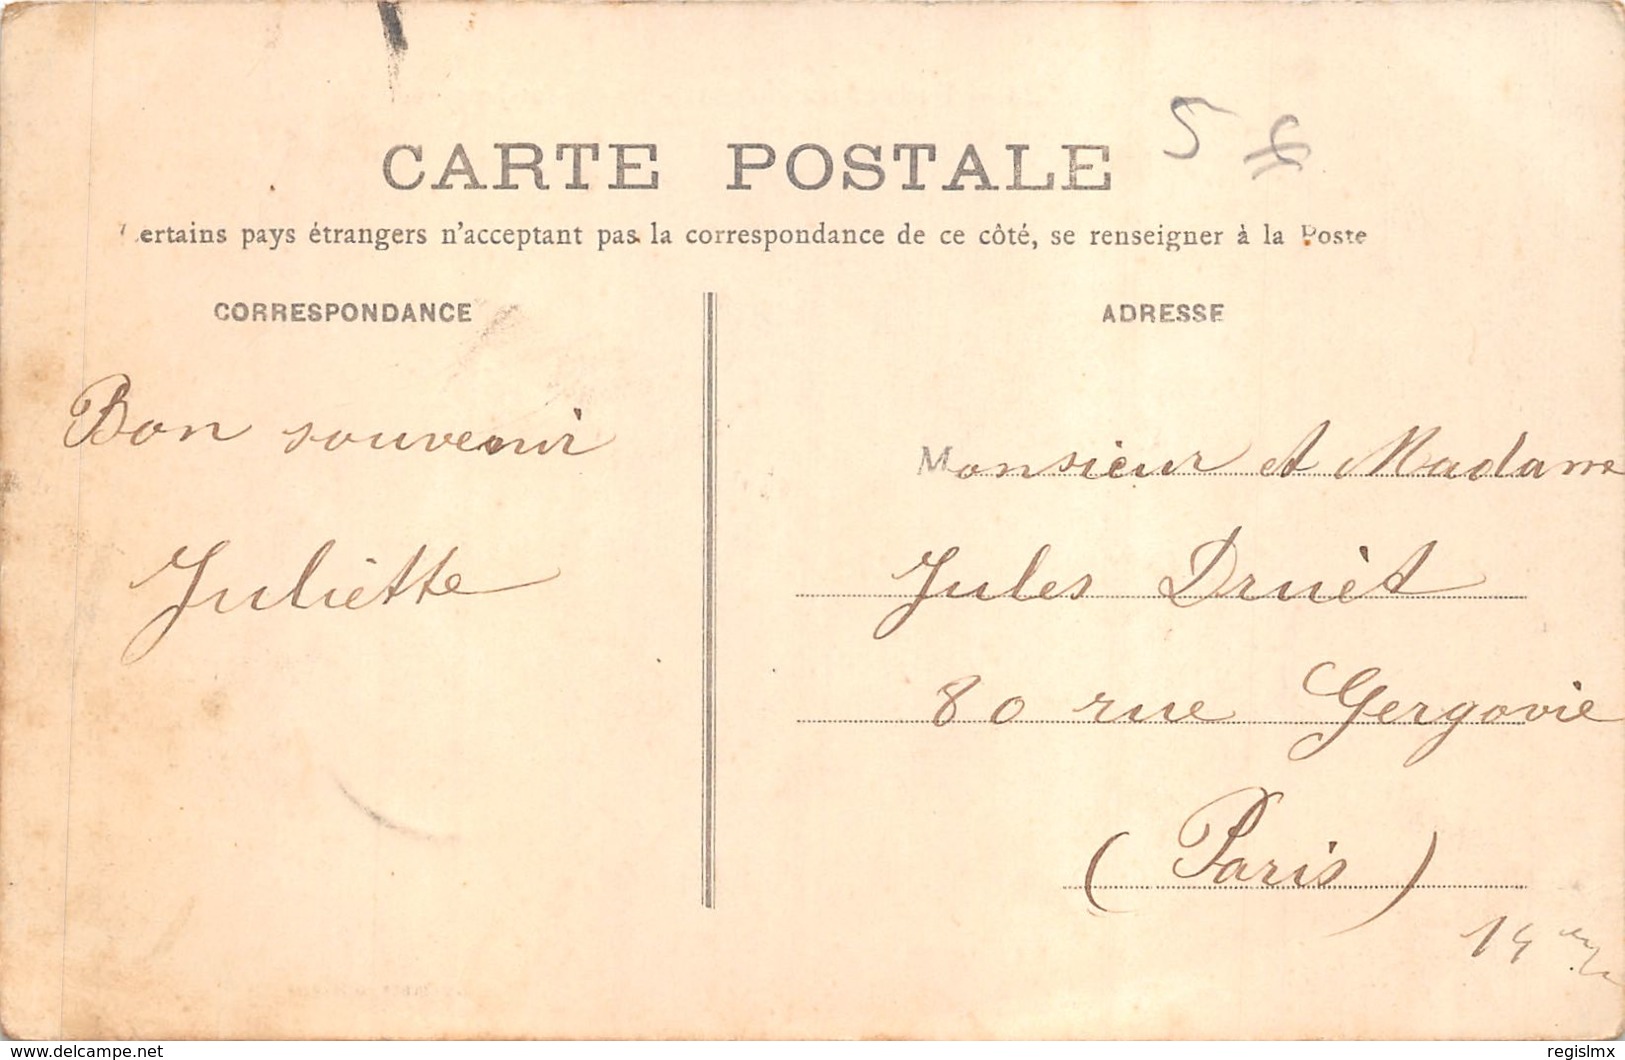 CARTE POSTALE
5 €
ertains pays étrangers n'acceptant pas la correspondance de ce côté, se renseigner à la Poste
CORRESPONDANCE
Bon souvenir
Juliètte
ADRESSE
Monsieur et Madame
Jules Druèt
80 rue Gergovie
(Paris)
14
www.delcampe.net
regislmx